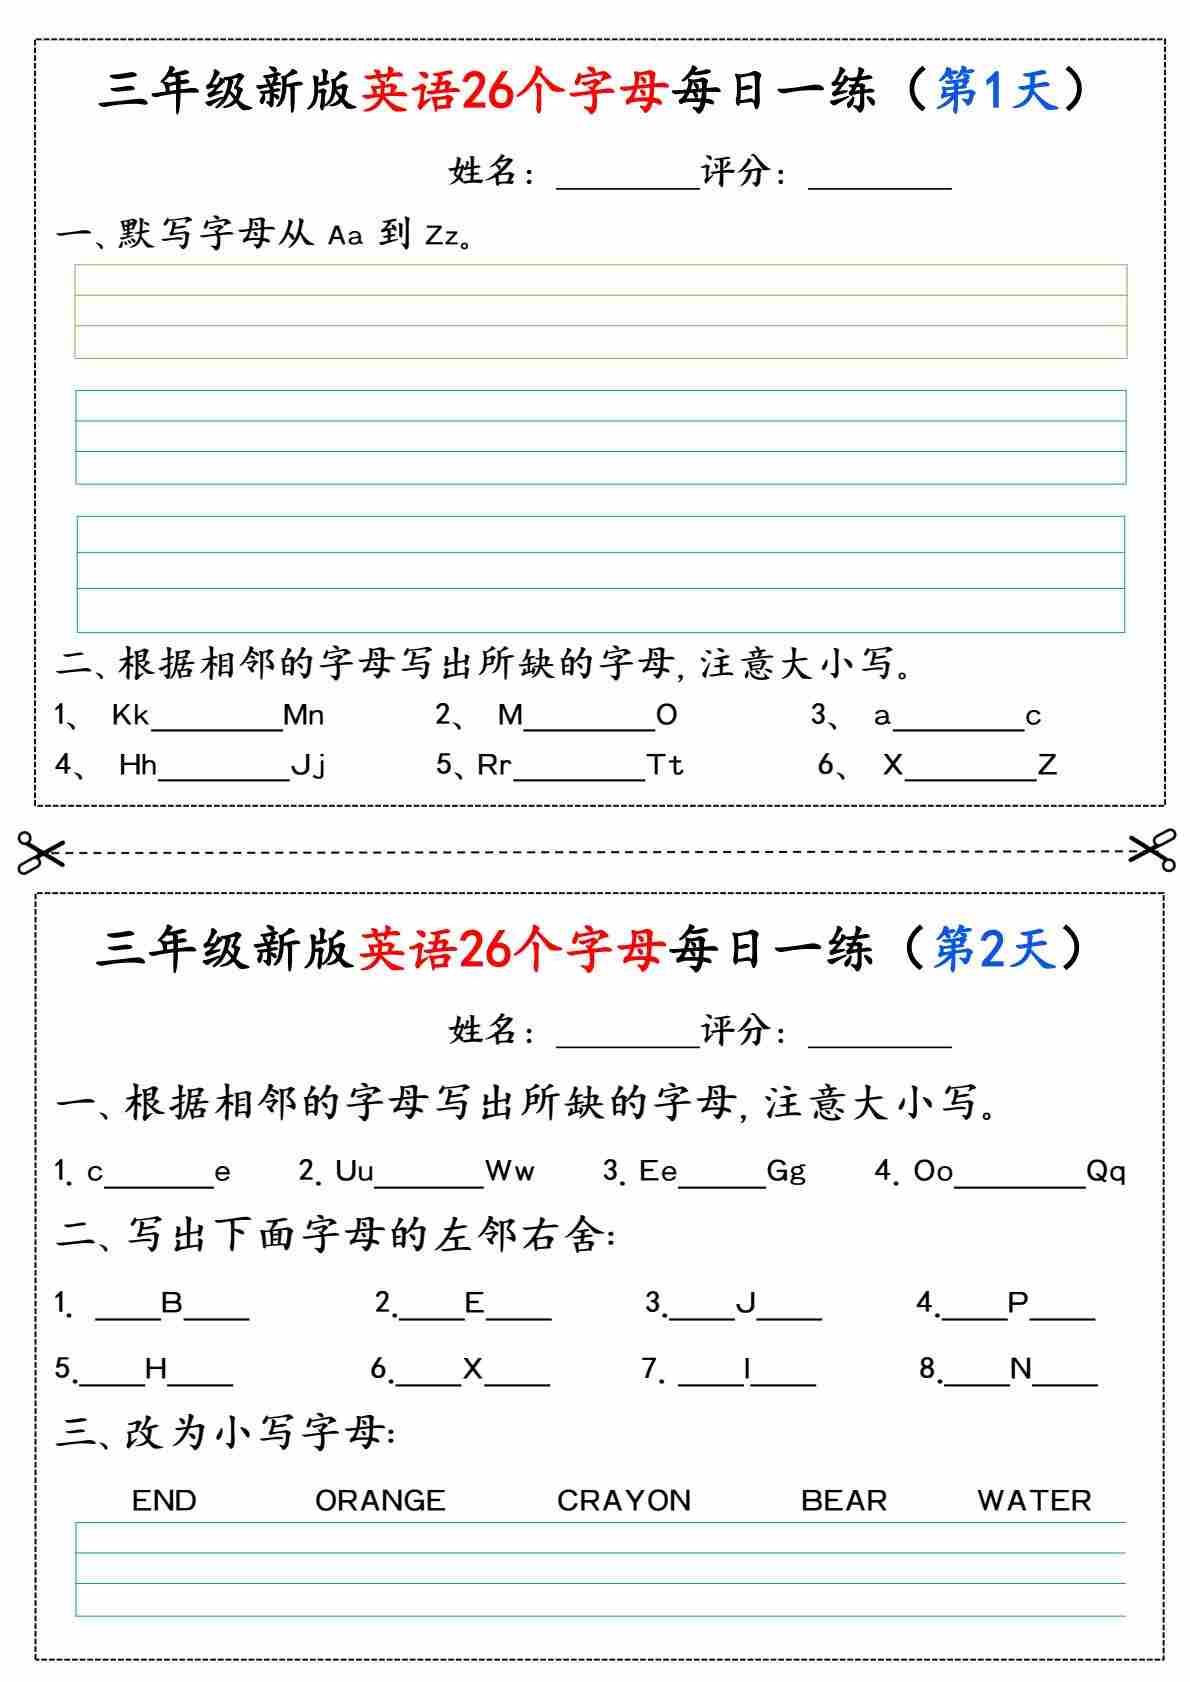 三年级新版英语26个字母每日一练（第1天）
姓名：________评分：________
一、默写字母从 Aa 到 Zz。
二、根据相邻的字母写出所缺的字母，注意大小写。
1、 Kk________Mn 2、 M________O 3、 a________c
4、 Hh________Jj 5、Rr________Tt 6、 X________Z
三年级新版英语26个字母每日一练（第2天）
姓名：________评分：________
一、根据相邻的字母写出所缺的字母，注意大小写。
1. c______e 2. Uu______Ww 3. Ee_____Gg 4. Oo________Qq
二、写出下面字母的左邻右舍：
1. ____B____ 2.____E____ 3.____J____ 4.____P____
5.____H____ 6.____X____ 7. ____I____ 8.____N____
三、改为小写字母：
END ORANGE CRAYON BEAR WATER